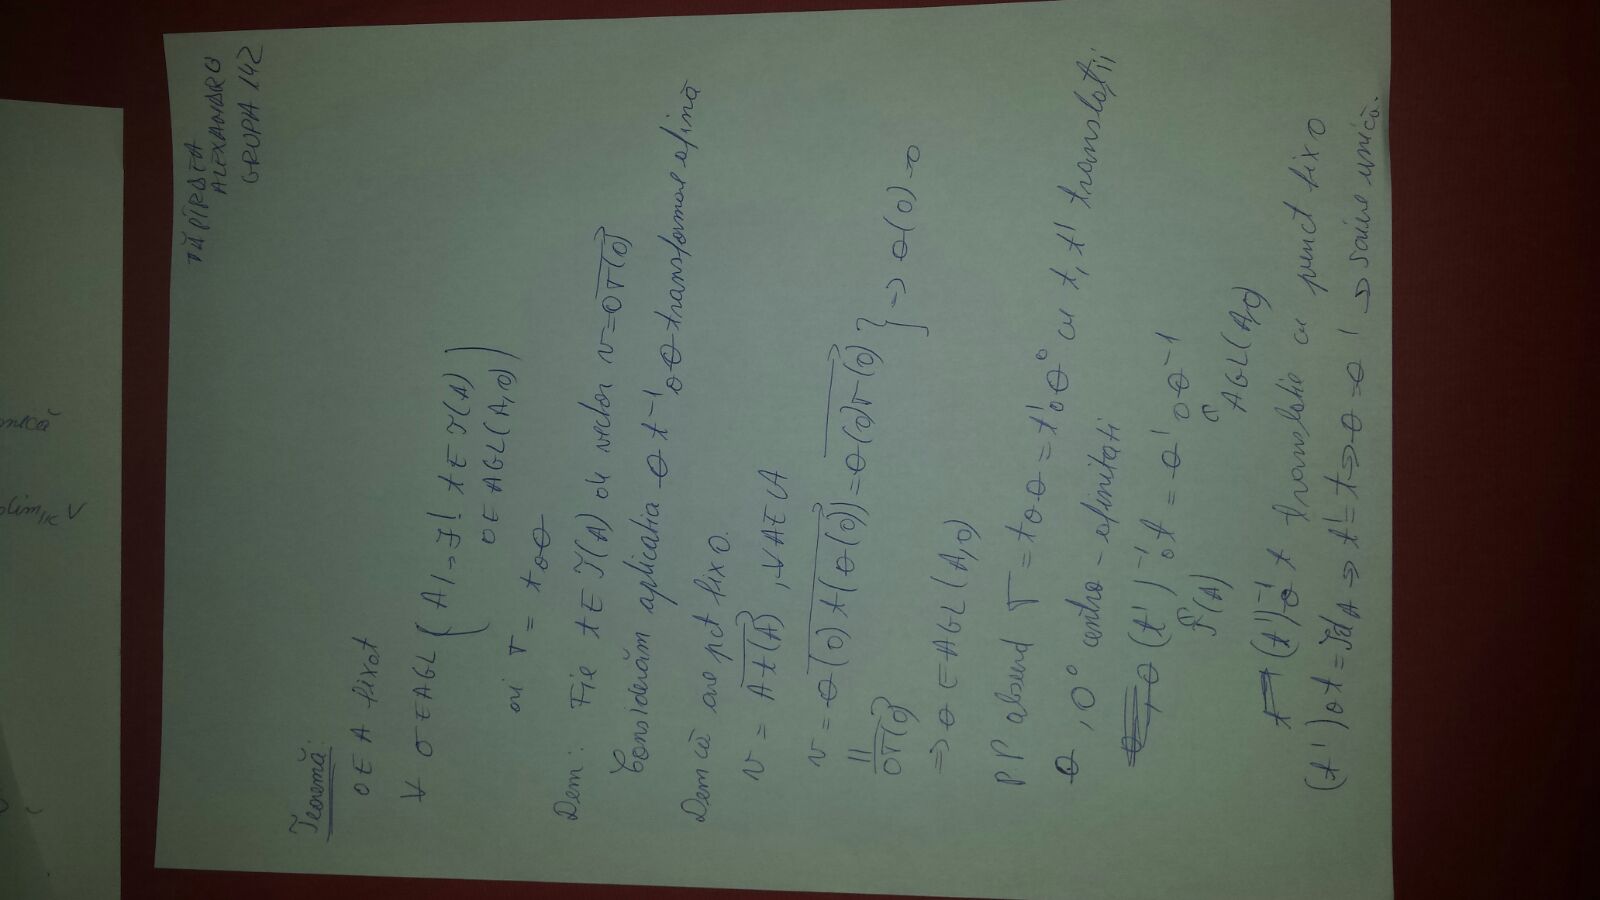 ALEXANDRU
GRUPA 142
Teoremă:
O ∈ A fixat
∀ σ ∈ AGL(A) → ∃! t ∈ T(A)
θ ∈ AGL(A,O)
ai σ = t∘θ
Dem: Fie t ∈ T(A) de vector v = Oσ(O)
Considerăm aplicatia θ t⁻¹∘σ transformare afină
Dem că are pct fix O.
v = At(A), ∀A∈A
v = θ(O)t(θ(O)) = θ(O)σ(O) } => θ(O)=O
Oσ(O)
=> θ ∈ AGL(A,O)
PP absurd σ = t∘θ = t'∘θ' cu t, t' translatii
θ, θ' centro-afinitati
(t')⁻¹∘t = θ'∘θ⁻¹
T(A) AGL(A,O)
(t')⁻¹∘t translatie cu punct fix O
(t')∘t = Id_A => t' = t => θ = θ' => scriere unică.
onică
dim_K V